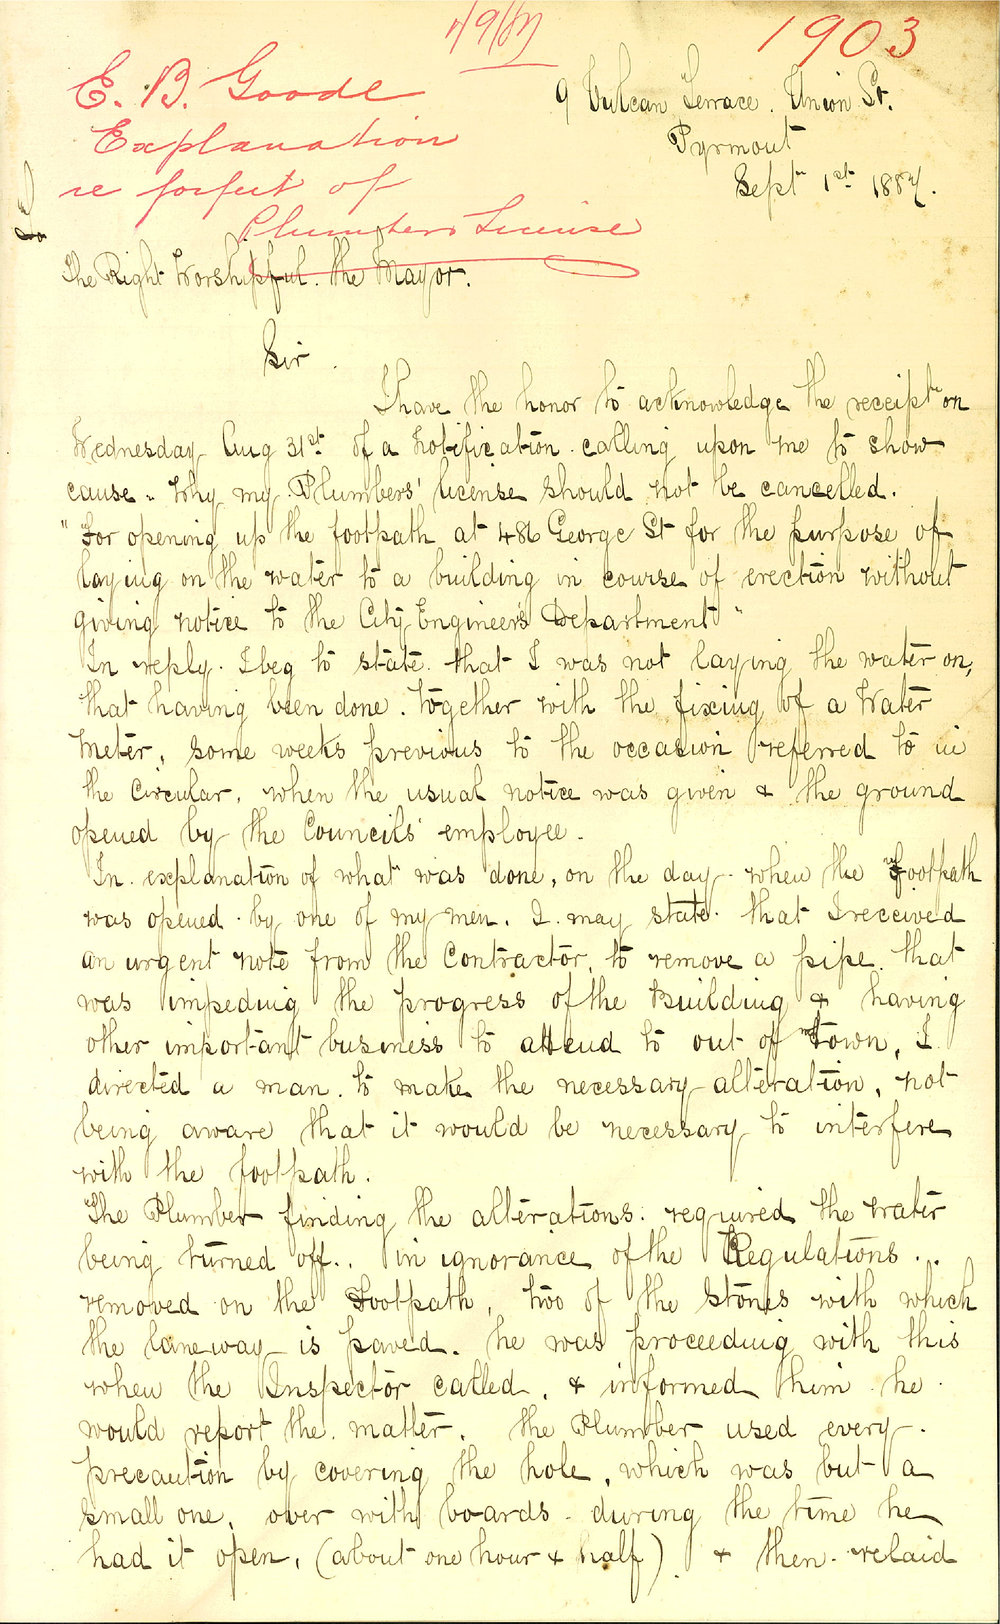 1903
E. B. Goode
Explanation
re forfeit of
Plumbers License
9 Vulcan Terrace. Union St.
Pyrmont
Sept 1st 1887.
The Right Worshipful. the Mayor.
Sir.
I have the honor to acknowledge the receipt on
Wednesday Aug 31st of a notification calling upon me to show
cause. Why my Plumbers' license should not be cancelled.
"For opening up the footpath at 486 George St for the purpose of
laying on the water to a building in course of erection without
giving notice to the City Engineer's Department"
In reply. I beg to state. that I was not laying the water on,
that having been done. together with the fixing of a Water
Meter, some weeks previous to the occasion referred to in
the Circular, when the usual notice was given & the ground
opened by the Councils' employee.
In explanation of what was done, on the day when the Footpath
was opened by one of my men. I may state. that I received
an urgent note from the Contractor, to remove a pipe that
was impeding the progress of the Building & having
other important business to attend to out of Town, I
directed a man. to make the necessary alteration, not
being aware that it would be necessary to interfere
with the footpath.
The Plumber finding the alterations. required the water
being turned off.. in ignorance of the Regulations..
removed on the Footpath, two of the stones with which
the laneway is paved. he was proceeding with this
when the Inspector called, & informed him he
would report the matter. the Plumber used every
precaution by covering the hole, which was but a
small one, over with boards during the time he
had it open, (about one hour & half) & then relaid